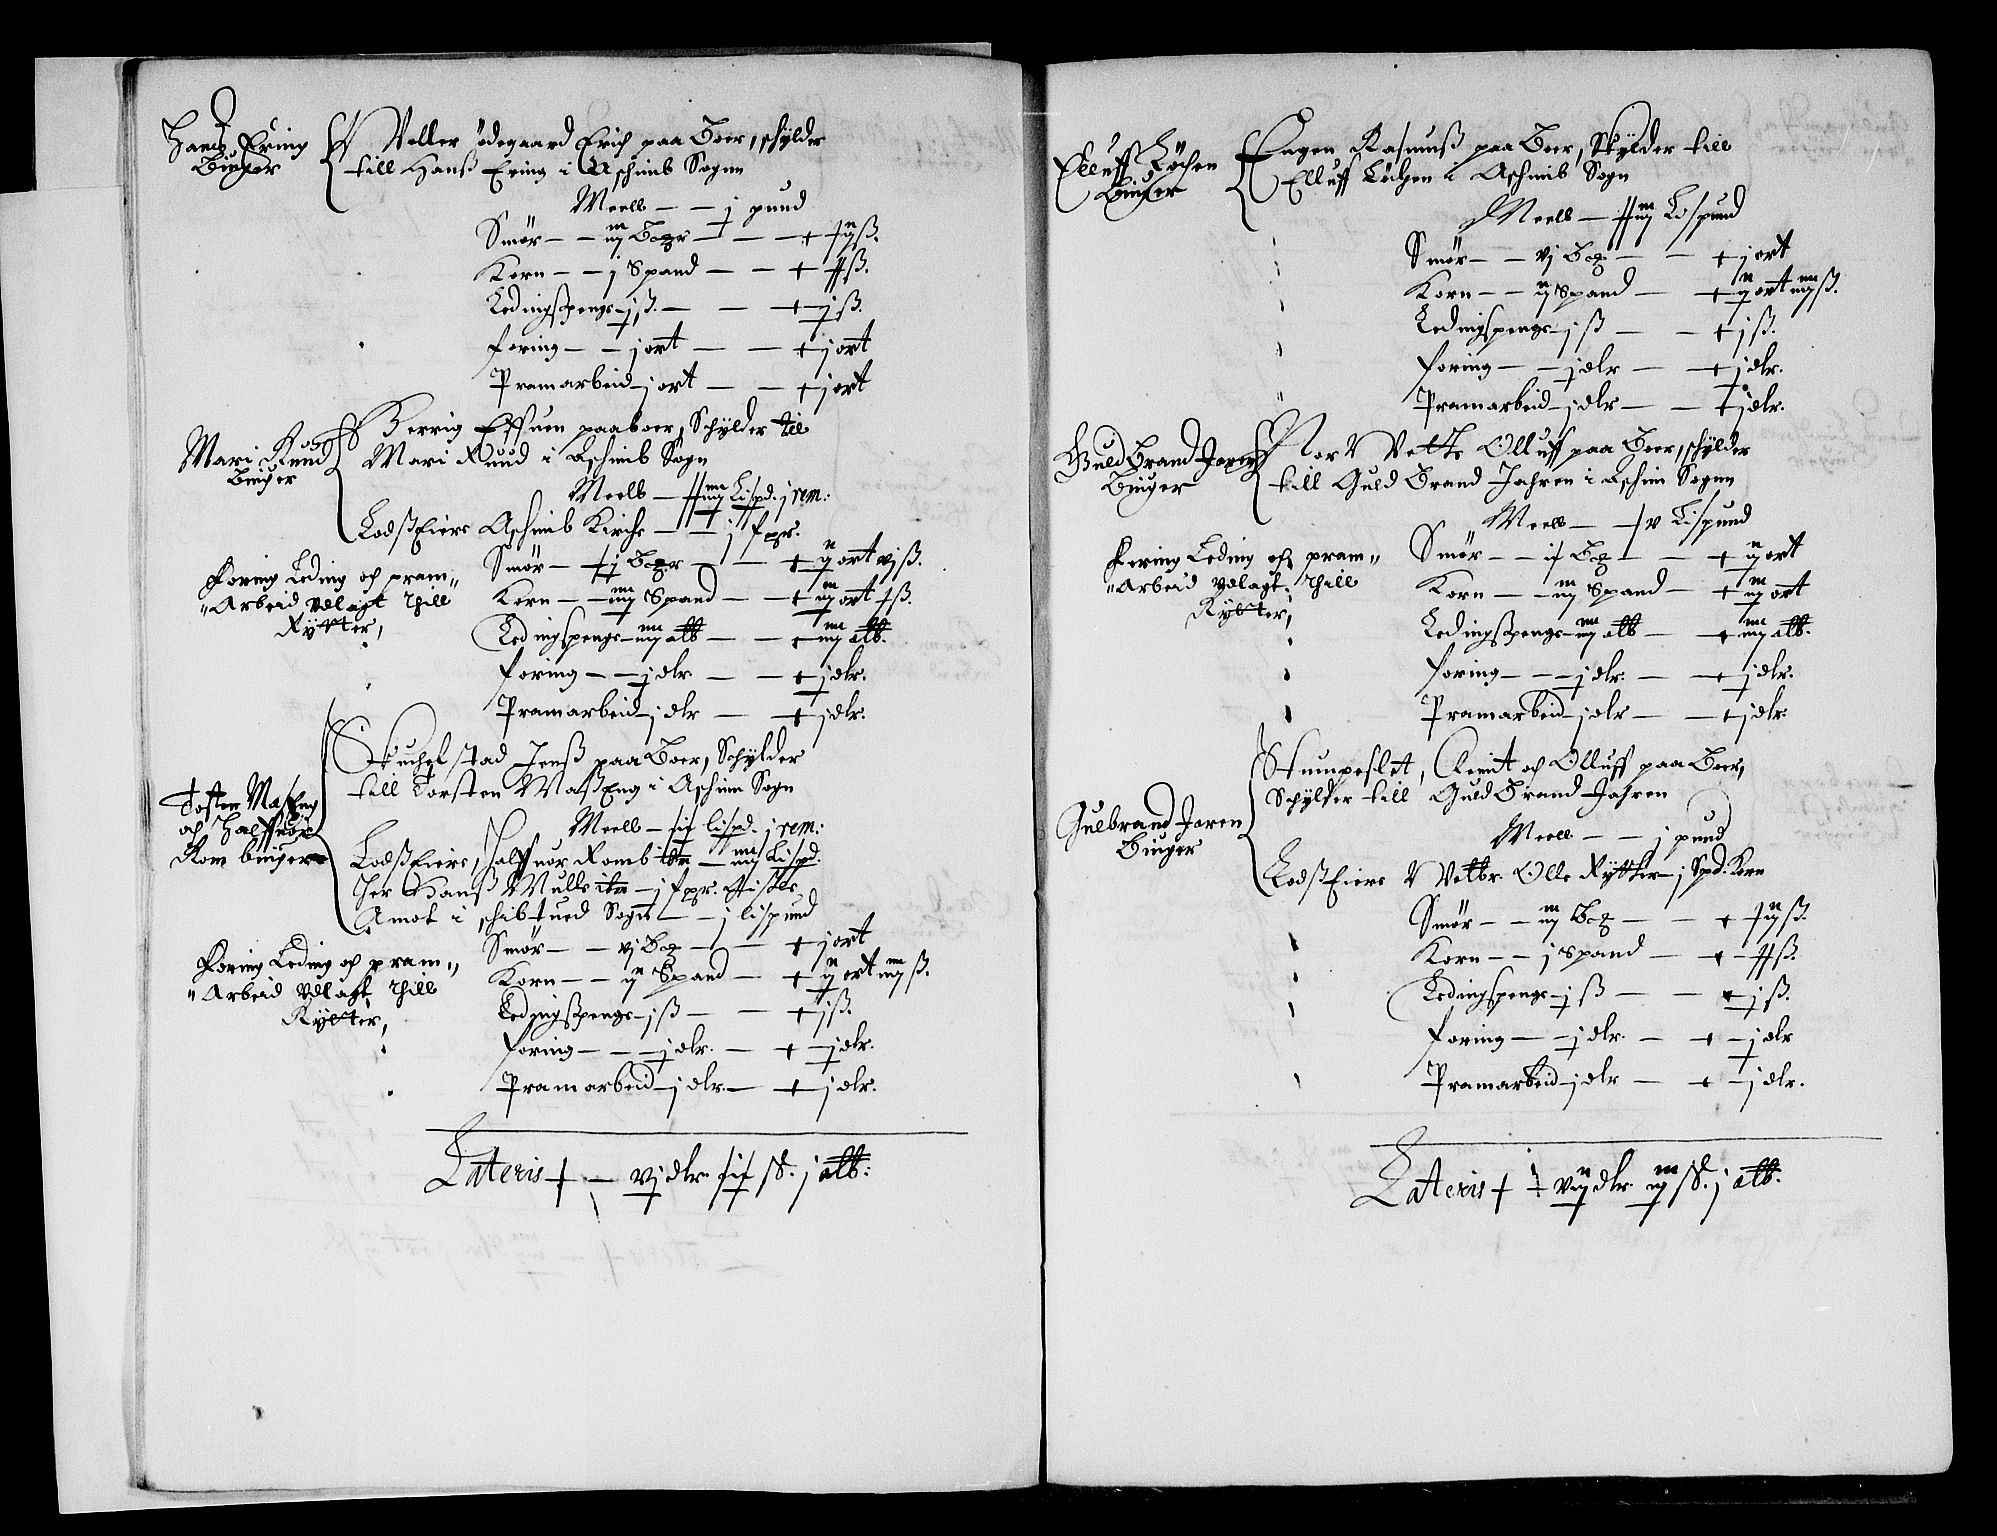 Hans Ering
Biuger
V Voller ödegaard Erich paa Boer, schÿlder
till Hanß Ering i Aschimb Sogen
Meell – – j pund
Smør – – iij Bogr – –
Korn – – j Spand – –
Ledingßpenge – j ß. – – j ß.
foring – – j ort – – j ort
Pramarbeid – j ort – – j ort
Mari Ruud
Biuger
Herrig Effuen paaboer, Schÿlder till
Mari Ruud i Aschimb Sogn
Meell – Lispd. j rem:
Lodß Eiere Aschimb Kirche – – j fpr.
Foring Leding och pram„
„Arbeid vdlagt thill
Rÿtter,
Smør – Bogr – – ij ort vj ß.
Korn – – iiij Spand – – iij ort ß.
Ledingspenge – iiij alb – – iiij alb.
foring – – j dlr – – j dlr.
Pramarbeid – j dlr – – j dlr.
Tosten Maseng
och Halffuor
Rom biuger
Skuchelstad Jenß paa Boer, Schÿlder
till Torsten Maß Eng i Aschim Sogn
Meell – lispd. j rem:
Lodß Eiere, Halffuor Romb – iiij Lispd.
Her Hanß Mulle – j fpr.
Amot i schibtued Sogn – – j lispund
Foring Leding och pram„
„Arbeid vdlagt thill
Rÿtter,
Smør – – vj Bog – – j ort
Korn – – ij Spand – ij ort iiij ß.
Ledingßpenge – j ß – – j ß.
foring – – – j dlr. – – j dlr.
Pramarbeid – j dlr. – – j dlr.
Lateris – vj dlr. ß. j alb:
Elluff Löchen
Biuger
Engen Rasmuß paa Boer, Skÿlder till
Elluff Löchen i Aschimb Sogn
Meell – Lispund
Smør – – vj Bog – – j ort
Korn – – ij Spand – ij ort iiij ß.
Ledingspenge – j ß – – j ß.
foring – – j dlr – – j dlr.
Pramarbeid – j dlr – – j dlr.
Guld Brand Jaren
Biuger
Nor V Vette Olluff paa Boer, schÿlder
till Guld Brand Jahren i Aschim Sogen
Meell – Lispund
Foring Leding och pram„
„Arbeid vdlagt thill
Rÿtter,
Smør – – Bog – – ij ort
Korn – – iij Spand – iij ort
Ledingßpenge – iiij alb – – iiij alb.
foring – – – j dlr. – – j dlr.
Pramarbeid – j dlr – – j dlr.
Gulbrand Jaren
Biuger
Stumpeslet, Clemit och Olluff paa Boer,
Schÿlder till Guld Brand Jahren
Meell – – j pund
Lodß Eiere V Vette Olle Rÿtter – j Spd. Korn
Smør – – iij Bog – –
Korn – – j Spand –
Ledingspenge – j ß – – j ß.
foring – – j dlr. – – j dlr
Pramarbeid – j dlr – – j dlr.
Lateris – dlr. iij ß. j alb.